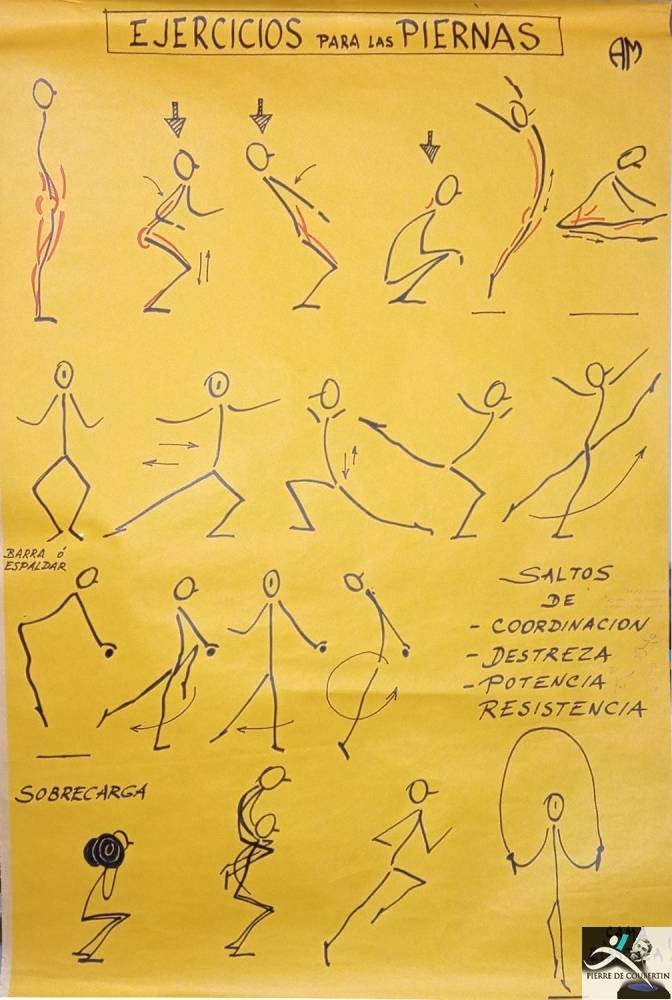 EJERCICIOS PARA LAS PIERNAS
AM
BARRA ó
ESPALDAR
SALTOS
DE
- COORDINACION
- DESTREZA
- POTENCIA
RESISTENCIA
SOBRECARGA
PIERRE DE COUBERTIN